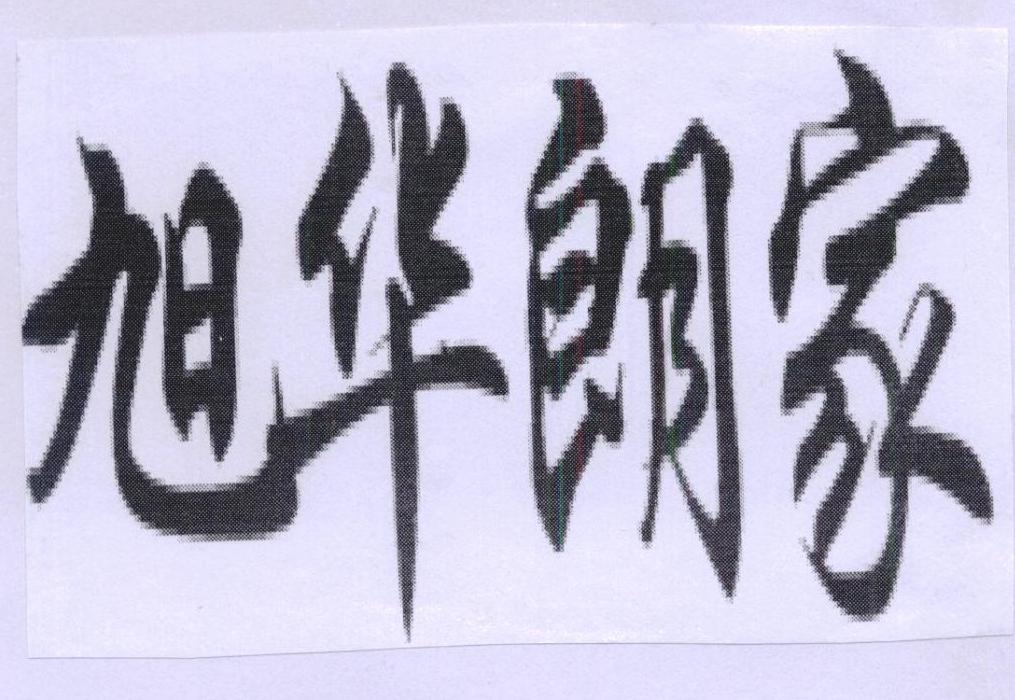 旭华朗家